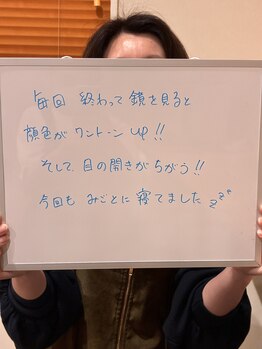 毎回 終わって 鏡を見ると
顔色が ワントーン up!!
そして 目の開きがちがう!!
今回も みごとに 寝てました zzz